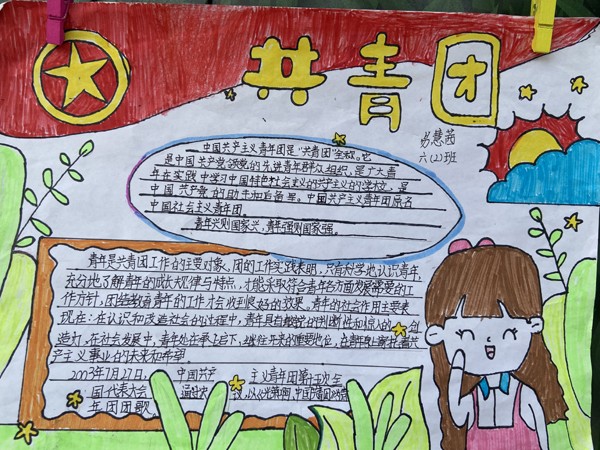 共青团
易慧茜
六(2)班
中国共产主义青年团是"共青团"全称。它
是中国共产党领导的先进青年群众组织,是广大青
年在实践中学习中国特色社会主义的共产主义的学校,是
中国共产党的助手和后备军。中国共产主义青年团原名
中国社会主义青年团。
青年兴则国家兴,青年强则国家强。
青年是共青团工作的主要对象。团的工作实践表明,只有科学地认识青年,
充分地了解青年的成长规律与特点,才能采取符合青年各方面发展需要的工
作方针,团结教育青年的工作才会收到良好的效果。青年的社会作用主要表
现在:在认识和改造社会的过程中,青年具有敏锐的判断性和惊人的创
造力,在社会发展中,青年处在承上启下,继往开来的重要地位,在青年身上寄托着共
产主义事业的未来和希望。
2003年7月27日, 中国共产主义青年团第十五次全
国代表大会
年团团歌